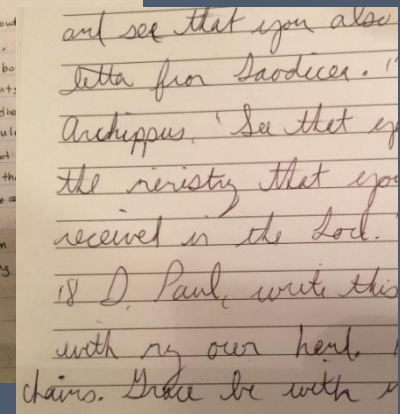 and see that you also
letta from Laodicea. "
Archippus, "See that y
the ministry that you
received in the Lord."
18 I, Paul, write this
with my own hand.
chains. Grace be with y